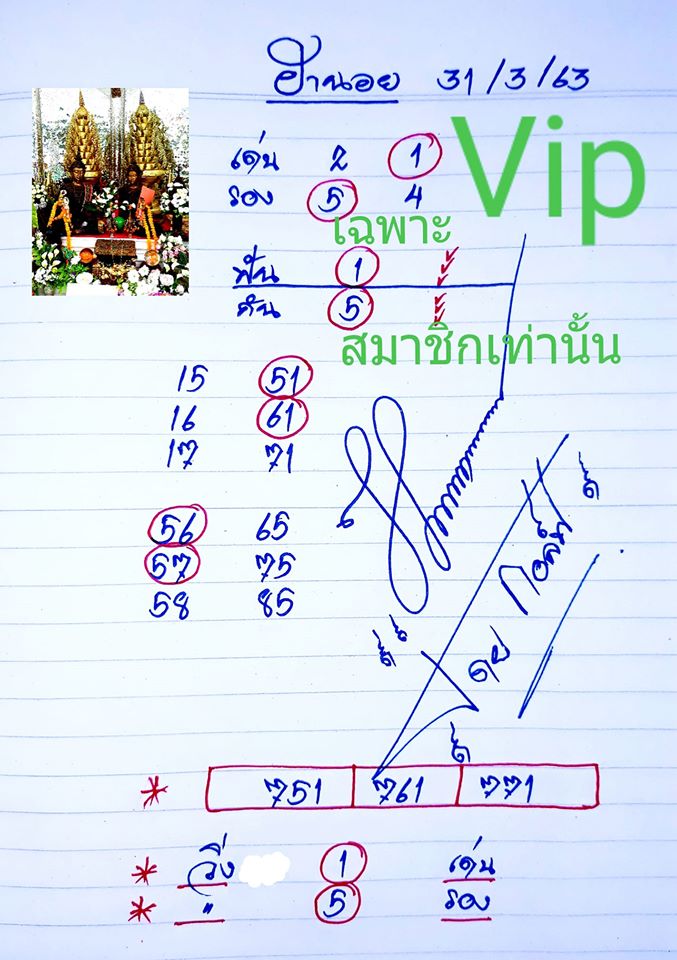 ฮานอย 31/3/63
Vip
เด่น 2 1
รอง 5 4
เฉพาะ
ฟัน 1
ดัน 5
สมาชิกเท่านั้น
15 51
16 61
17 71
56 65
57 75
58 85
751 761 771
* วิ่ง 1 เด่น
* " 5 รอง